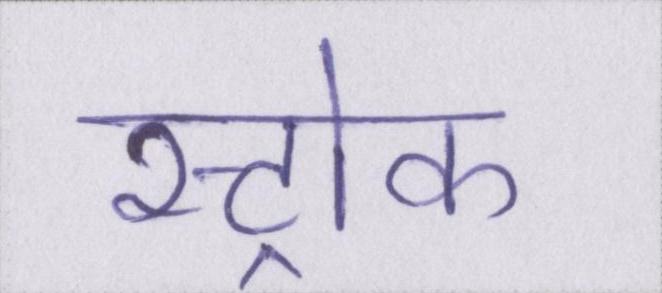 स्ट्रोक